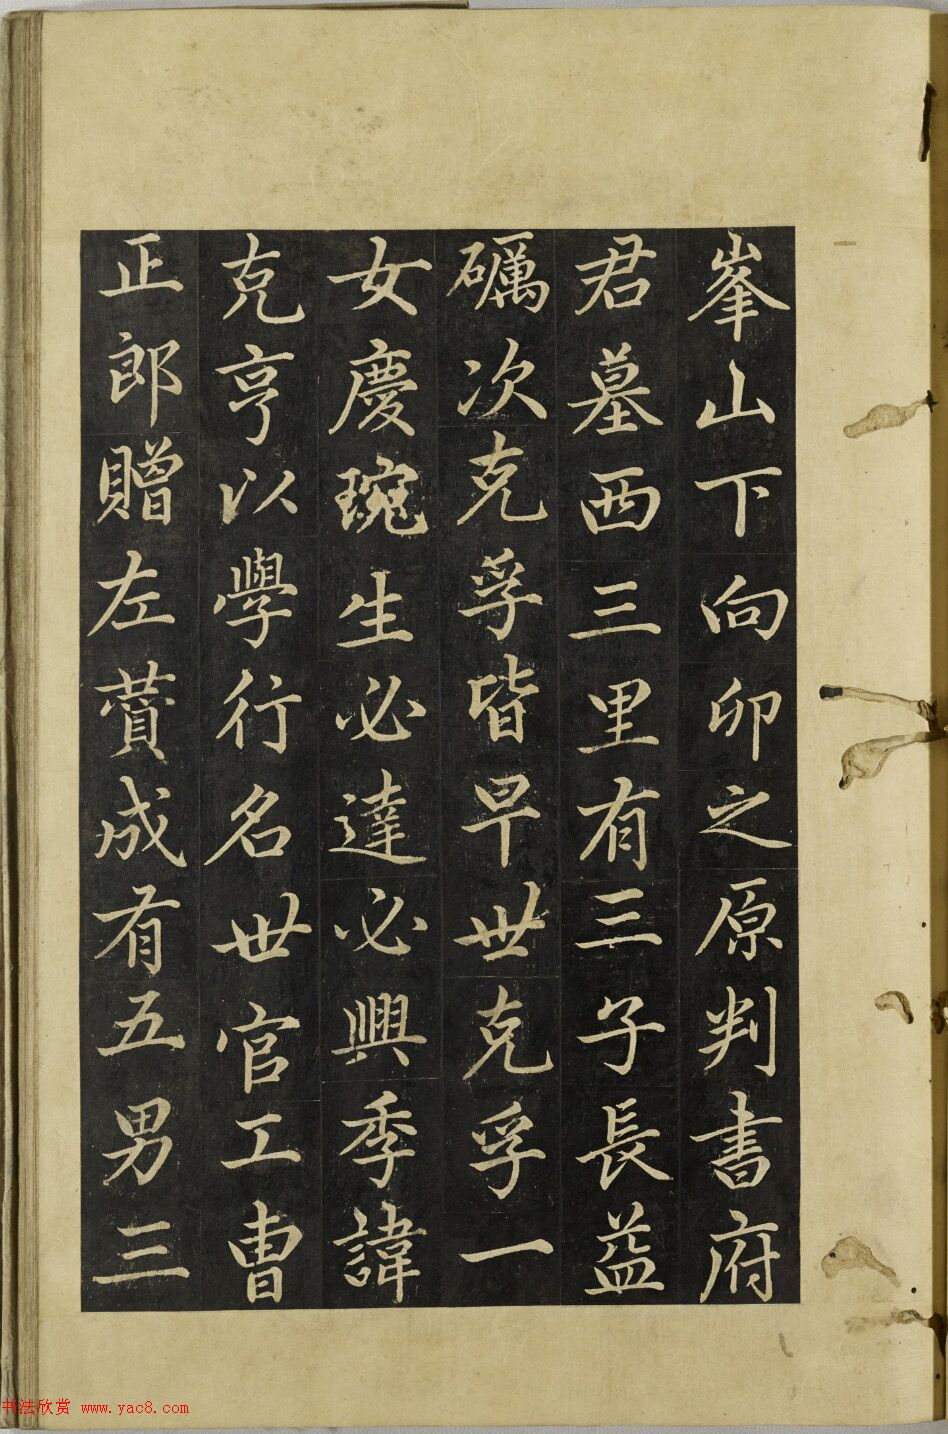 峯山下向卯之原判書府
君墓西三里有三子長益
礪次克孚皆早世克孚一
女慶琬生必達必興季諱
克亨以學行名世官工曹
正郎贈左賛成有五男三
书法欣赏 www.yac8.com